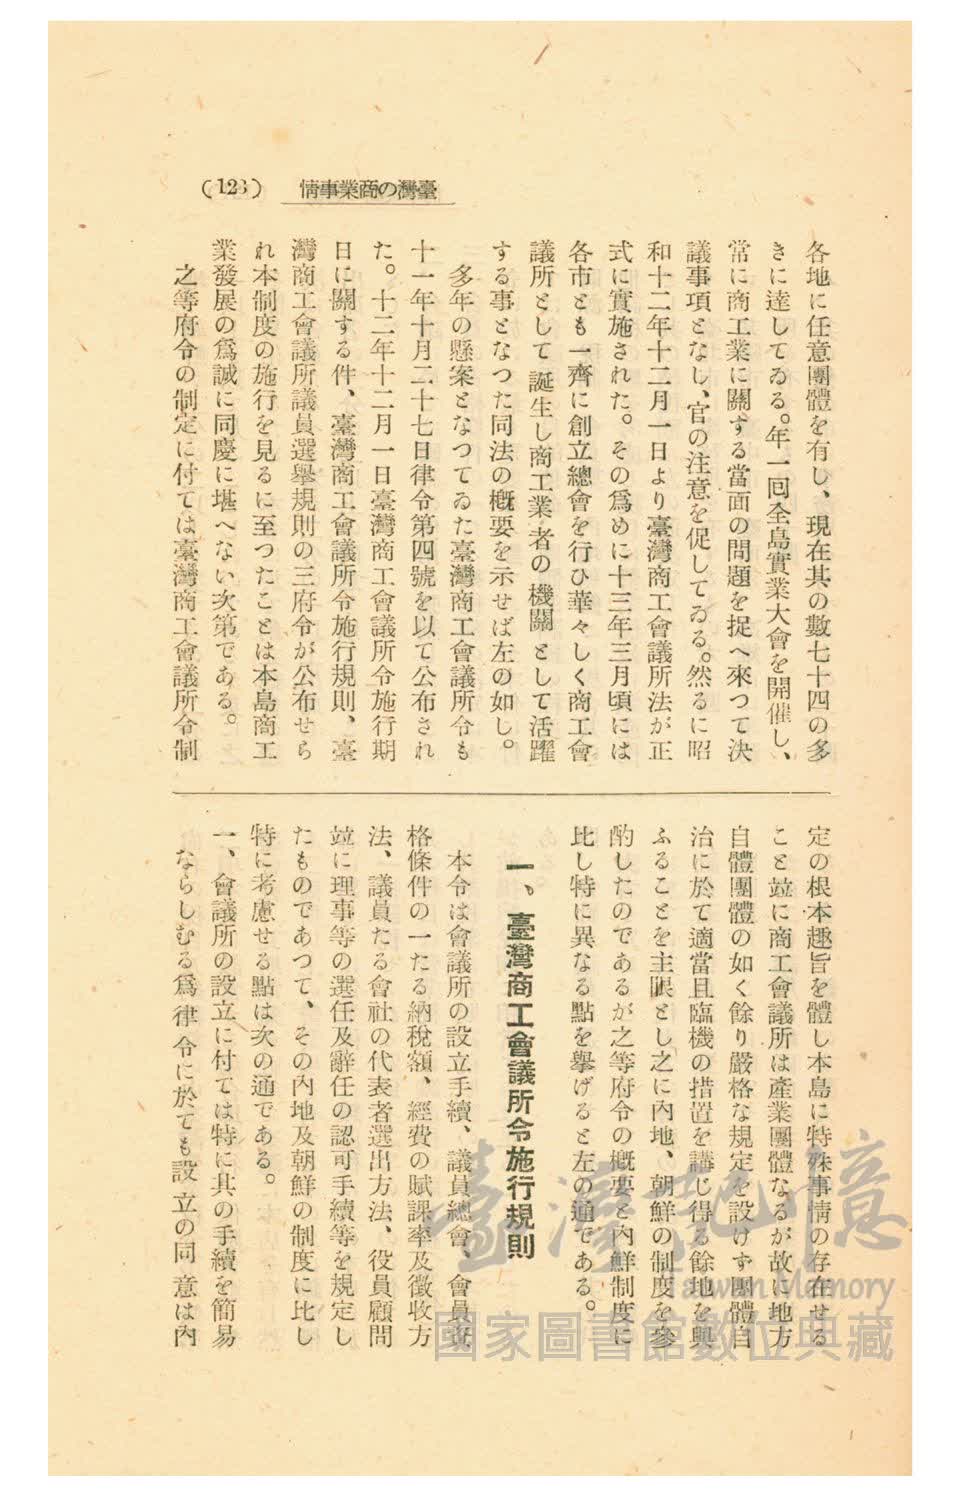 臺灣の商業事情
(123)
各地に任意團體を有し、現在其の數七十四の多
きに達してゐる。年一回全島實業大會を開催し、
常に商工業に關する當面の問題を捉へ來つて決
議事項となし、官の注意を促してゐる。然るに昭
和十二年十二月一日より臺灣商工會議所法が正
式に實施された。その爲めに十三年三月頃には
各市とも一齊に創立總會を行ひ華々しく商工會
議所として誕生し商工業者の機關として活躍
する事となつた同法の概要を示せば左の如し。
多年の懸案となつてゐた臺灣商工會議所令も
十一年十月二十七日律令第四號を以て公布され
た。十二年十二月一日臺灣商工會議所令施行期
日に關する件、臺灣商工會議所令施行規則、臺
灣商工會議所議員選擧規則の三府令が公布せら
れ本制度の施行を見るに至つたことは本島商工
業發展の爲誠に同慶に堪へない次第である。
之等府令の制定に付ては臺灣商工會議所令制
定の根本趣旨を體し本島に特殊事情の存在せる
こと竝に商工會議所は產業團體なるが故に地方
自體團體の如く餘り嚴格な規定を設けず團體自
治に於て適當且臨機の措置を講じ得る餘地を與
ふることを主眼とし之に內地、朝鮮の制度を參
酌したのであるが之等府令の概要と內鮮制度に
比し特に異なる點を擧げると左の通である。
一、臺灣商工會議所令施行規則
本令は會議所の設立手續、議員總會、會員資
格條件の一たる納稅額、經費の賦課率及徵收方
法、議員たる會社の代表者選出方法、役員顧問
竝に理事等の選任及辭任の認可手續等を規定し
たものであつて、その內地及朝鮮の制度に比し
特に考慮せる點は次の通である。
一、會議所の設立に付ては特に其の手續を簡易
ならしむる爲律令に於ても設立の同意は內
臺灣記憶
Taiwan Memory
國家圖書館數位典藏